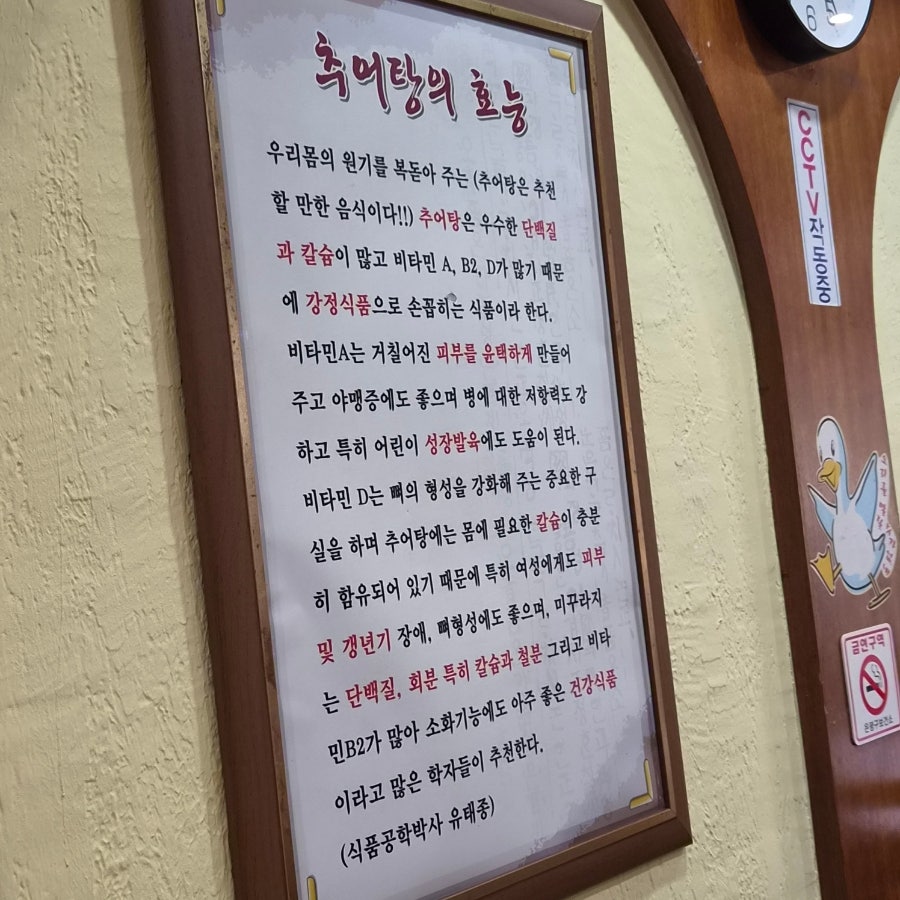 추어탕의 효능
우리몸의 원기를 복돋아 주는 (추어탕은 추천
할 만한 음식이다!!) 추어탕은 우수한 단백질
과 칼슘이 많고 비타민 A, B2, D가 많기 때문
에 강정식품으로 손꼽히는 식품이라 한다.
비타민A는 거칠어진 피부를 윤택하게 만들어
주고 야맹증에도 좋으며 병에 대한 저항력도 강
하고 특히 어린이 성장발육에도 도움이 된다.
비타민 D는 뼈의 형성을 강화해 주는 중요한 구
실을 하며 추어탕에는 몸에 필요한 칼슘이 충분
히 함유되어 있기 때문에 특히 여성에게도 피부
및 갱년기 장애, 뼈형성에도 좋으며, 미꾸라지
는 단백질, 회분 특히 칼슘과 철분 그리고 비타
민B2가 많아 소화기능에도 아주 좋은 건강식품
이라고 많은 학자들이 추천한다.
(식품공학박사 유태종)
6 5
CCTV작동중
금연구역
은평구보건소